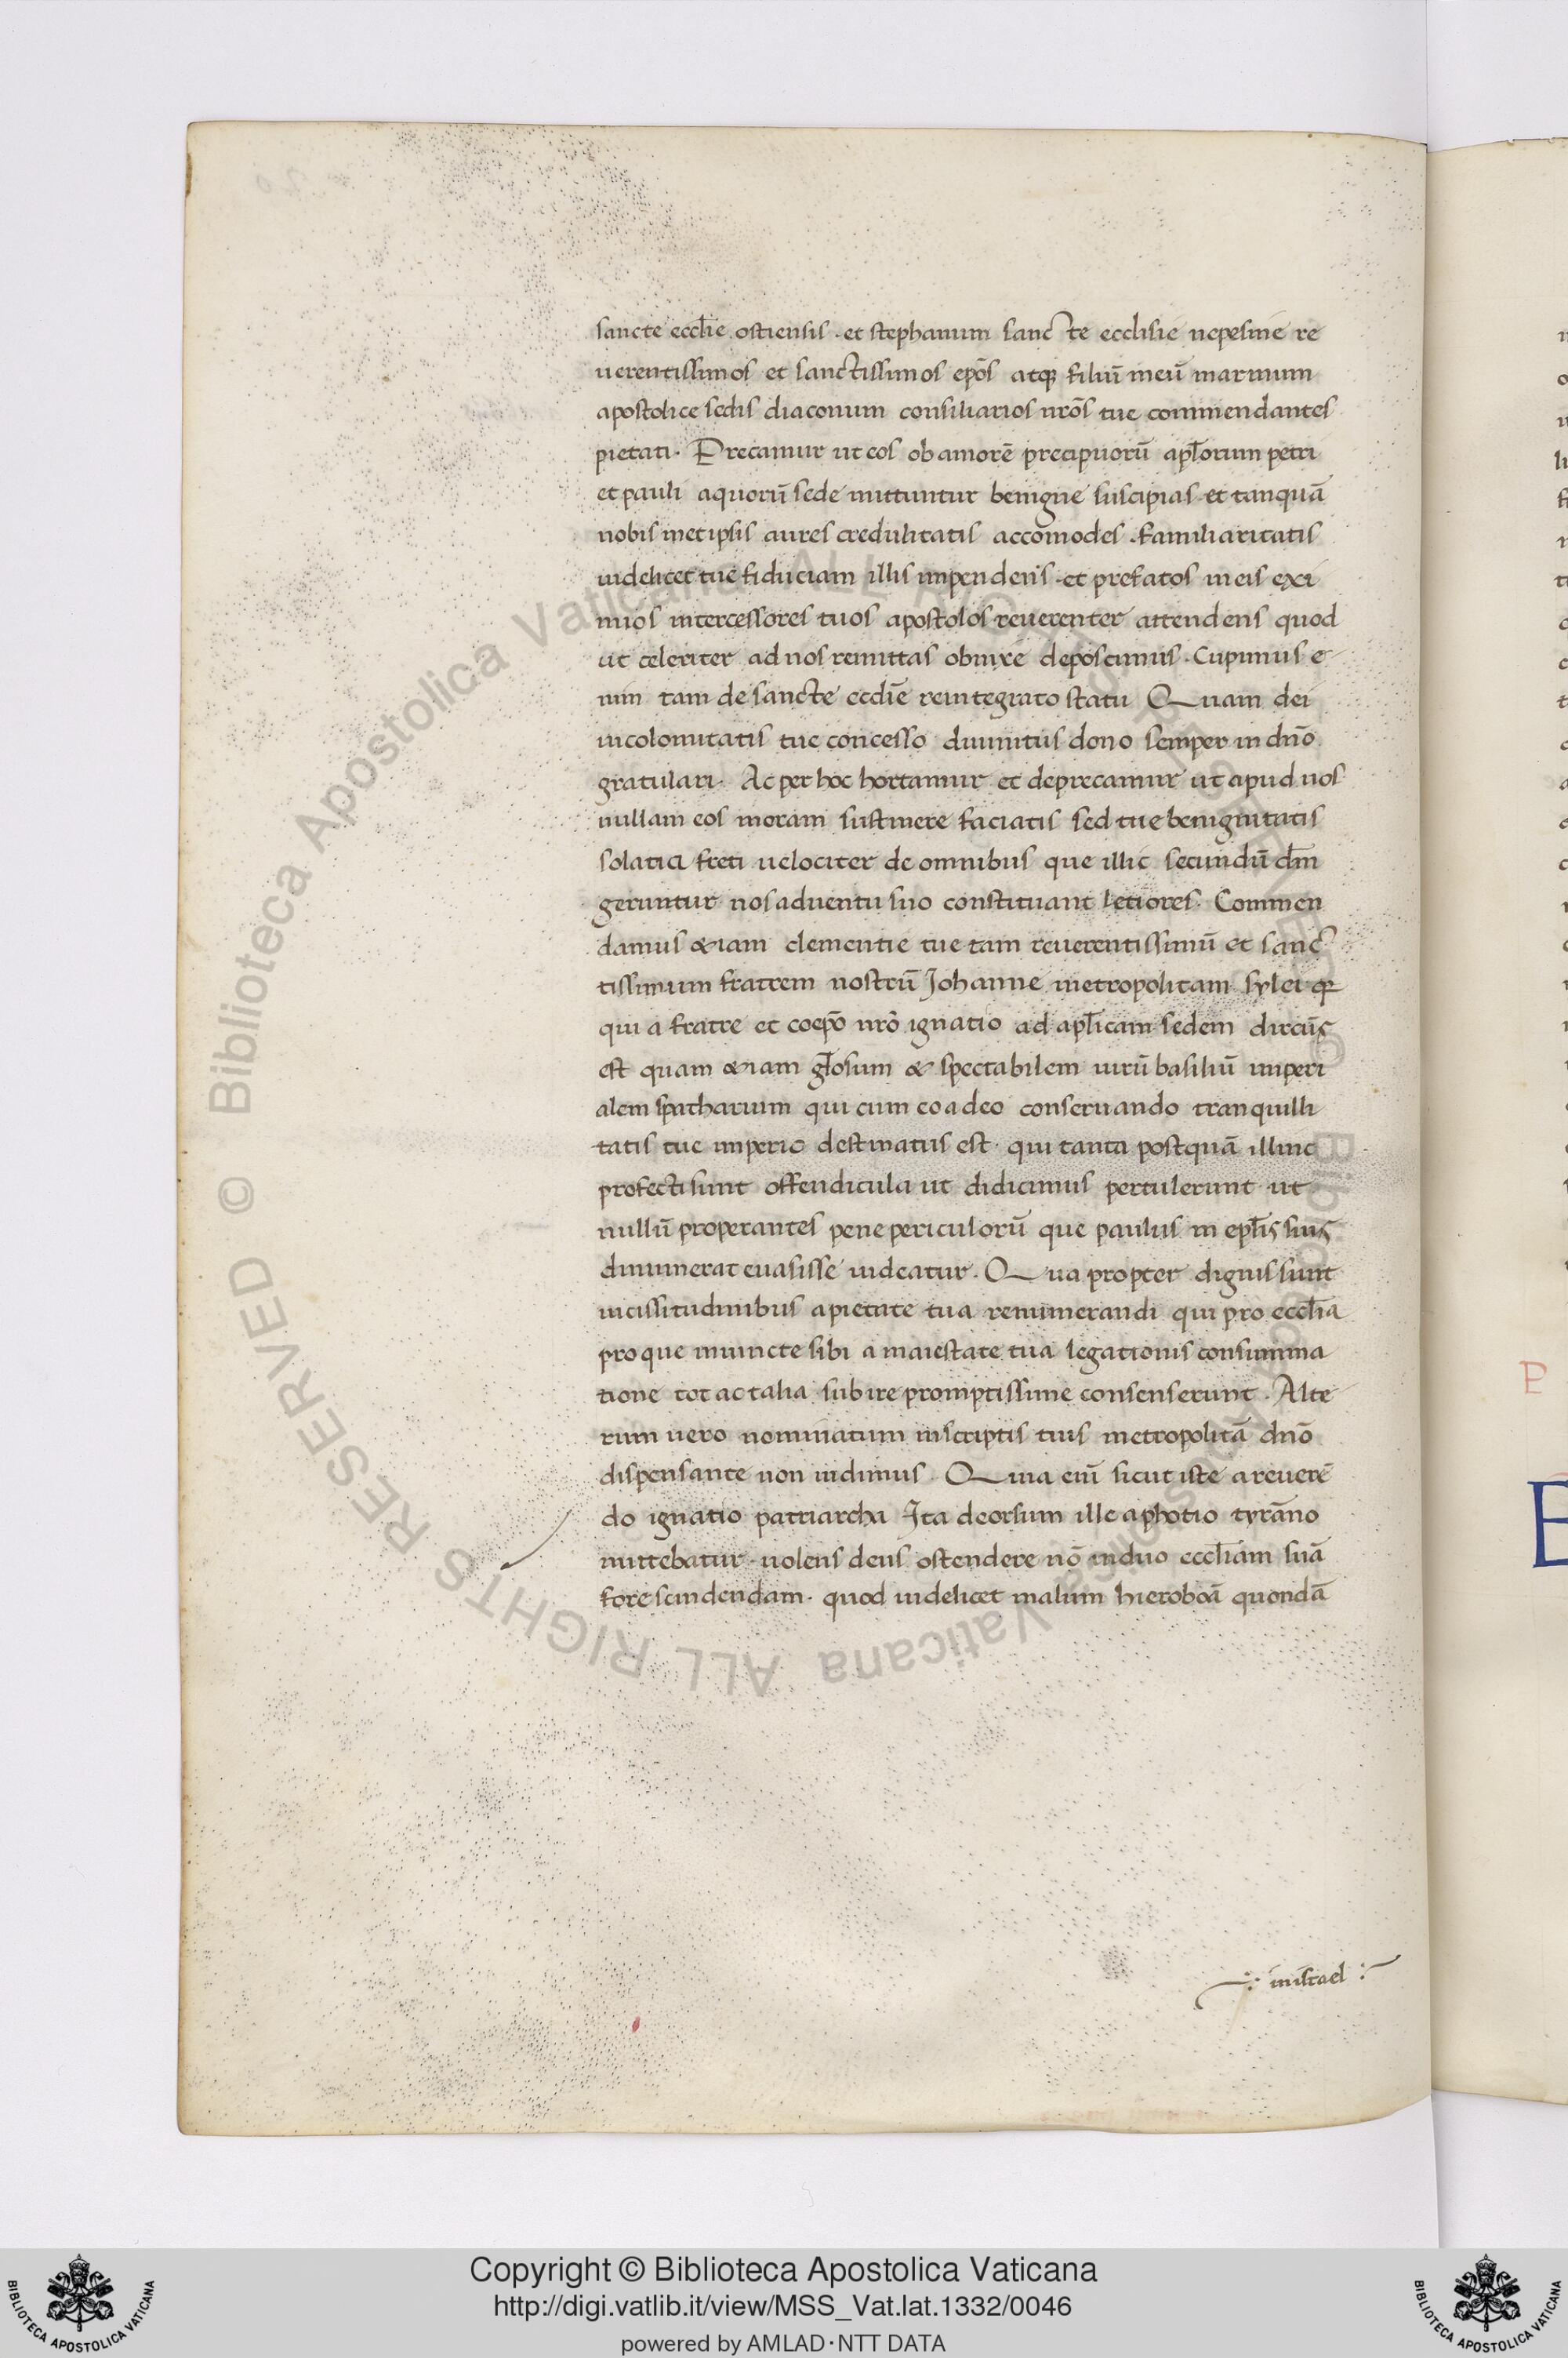 sancte eccl̄ie ostiensis · et stephanum sancte ecclisie nepesine re
uerentissimos et sanctissimos ep̄os atq; filiū meū marinum
apostolice sedis diaconum consiliarios nr̄os tue commendantes
pietati · Precamur ut eos ob amorē precipuorū apl̄orum petri
et pauli a quorū sede mittuntur benigne suscipias · et tanquā
nobis met ipsis aures credulitatis accōmodes · familiaritatis
uidelicet tue fiduciam illis impendens · et prefatos in eis exi
mios intercessores tuos apostolos reuerenter attendens quod
ut celeriter ad nos remittas obnixe deposcimus · Cupimus e
nim tam de sancte eccl̄ie reintegrato statu Quam dei
incolomitatis tue concesso diuinitus dono semper in dn̄o
gratulari · Ac per hoc hortamur et deprecamur ut apud uos
nullam eos moram sustinere faciatis sed tue benignitatis
solatia freti uelociter de omnibus que illic secundū dm̄
geruntur nos aduentu suo constituant letiores · Commen
damus etiam clementie tue tam reuerentissimū et sanc
tissimum fratrem nostrū Johanne metropolitam sylei q;
qui a fratre et coep̄o nr̄o ignatio ad apl̄icam sedem directus
est quam etiam gl̄osum & spectabilem uirū basiliū imperi
alem spatharium qui cum eo a deo conseruando tranquilli
tatis tue imperio destinatus est · qui tanta postquā illinc
profecti sunt offendicula ut didicimus pertulerunt ut
nullū properantes pene periculorū que paulus in epl̄is suis
dinumerat euasisse uideatur · Qua propter dignis sunt
uicissitudinibus a pietate tua renumerandi qui pro eccl̄ia
pro que iniuncte sibi a maiestate tua legationis consumma
tione tot ac talia subire promptissime consenserunt · Alte
rum uero nominatum in scriptis tuis metropolitā dn̄o
dispensante non uidimus · Quia eni᷃ sicut iste a reuerē
do ignatio patriarcha Ita deorsum ille a photio tyrāno
mittebatur · uolens deus ostendere nō in duo eccl̄iam suā
fore scindendam · quod uidelicet malum hieroboā quondā
in iscael
P
E
Copyright © Biblioteca Apostolica Vaticana
http://digi.vatlib.it/view/MSS_Vat.lat.1332/0046
powered by AMLAD·NTT DATA
BIBLIOTECA APOSTOLICA VATICANA
BIBLIOTECA APOSTOLICA VATICANA
© Biblioteca Apostolica Vaticana ALL RIGHTS RESERVED
© Biblioteca Apostolica Vaticana ALL RIGHTS RESERVED